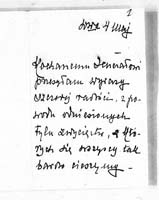 1
4 Maj
Kochanemu Generałowi
przesyłam wyrazy
szczerej radości, z po-
wodu odniesionych
tylu zwycięstw, z któ-
rych się wszyscy tak
bardzo cieszymy